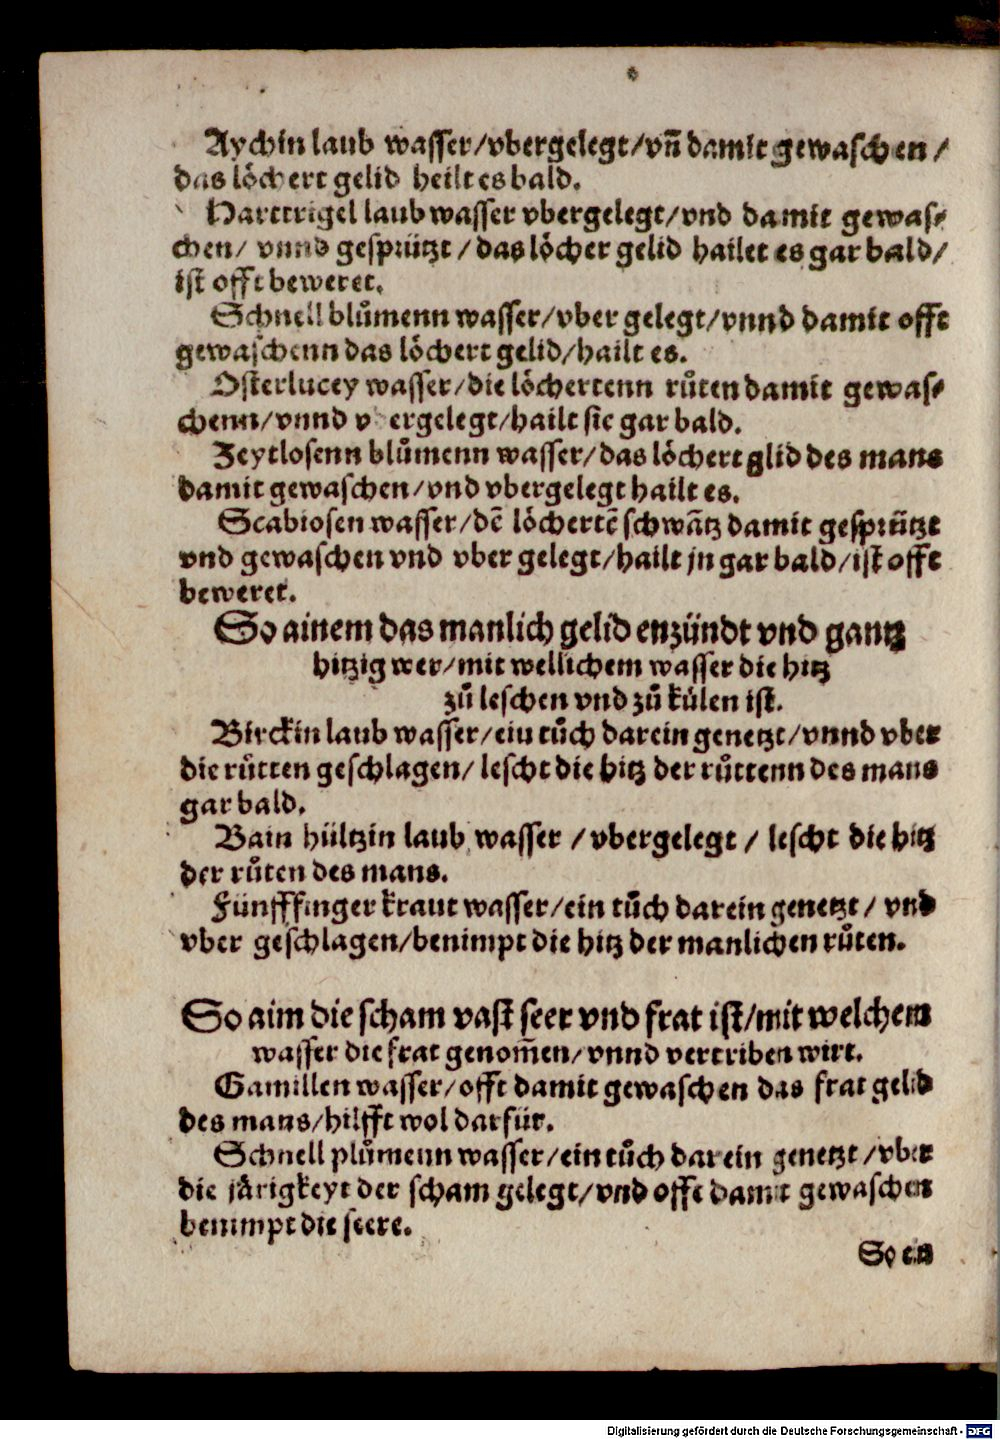 Aychin laub wasser/vbergelegt/vn̄ damit gewaschen/
das löchert gelid heilt es bald.
Harttrigel laub wasser vbergelegt/vnd damit gewas⸗
chen/ vnnd gesprützt/das löcher gelid hailet es gar bald/
ist offt beweret.
Schnell blůmenn wasser/vber gelegt/vnnd damit offt
gewaschenn das löchert gelid/hailt es.
Osterlucey wasser/die löchertenn růten damit gewas⸗
chenn/vnnd vbergelegt/hailt sie gar bald.
Zeytlosenn blůmenn wasser/das löchert glid des mans
damit gewaschen/vnd vbergelegt hailt es.
Scabiosen wasser/dē löchertē schwātz damit gesprützt
vnd gewaschen vnd vber gelegt/hailt jn gar bald/ist offt
beweret.
So ainem das manlich gelid enzündt vnd gantz
hitzig wer/mit wellichem wasser die hitz
zů leschen vnd zů kůlen ist.
Birckin laub wasser/ein tůch darein genetzt/vnnd vber
die růtten geschlagen/ lescht die hitz der růttenn des mans
gar bald.
Bain hültzin laub wasser /vbergelegt / lescht die hitz
der růten des mans.
Fünfffinger kraut wasser/ein tůch darein genetzt/ vnd
vber geschlagen/benimpt die hitz der manlichen růten.
So aim die scham vast seer vnd frat ist/mit welchem
wasser die frat genom̄en/vnnd vertriben wirt.
Gamillen wasser/offt damit gewaschen das frat gelid
des mans/hilfft wol darfür.
Schnell plůmenn wasser/ein tůch darein genetzt/vber
die jårigkeyt der scham gelegt/vnd offt damit gewaschen
benimpt die seere.
So en
Digitalisierung gefördert durch die Deutsche Forschungsgemeinschaft - DFG